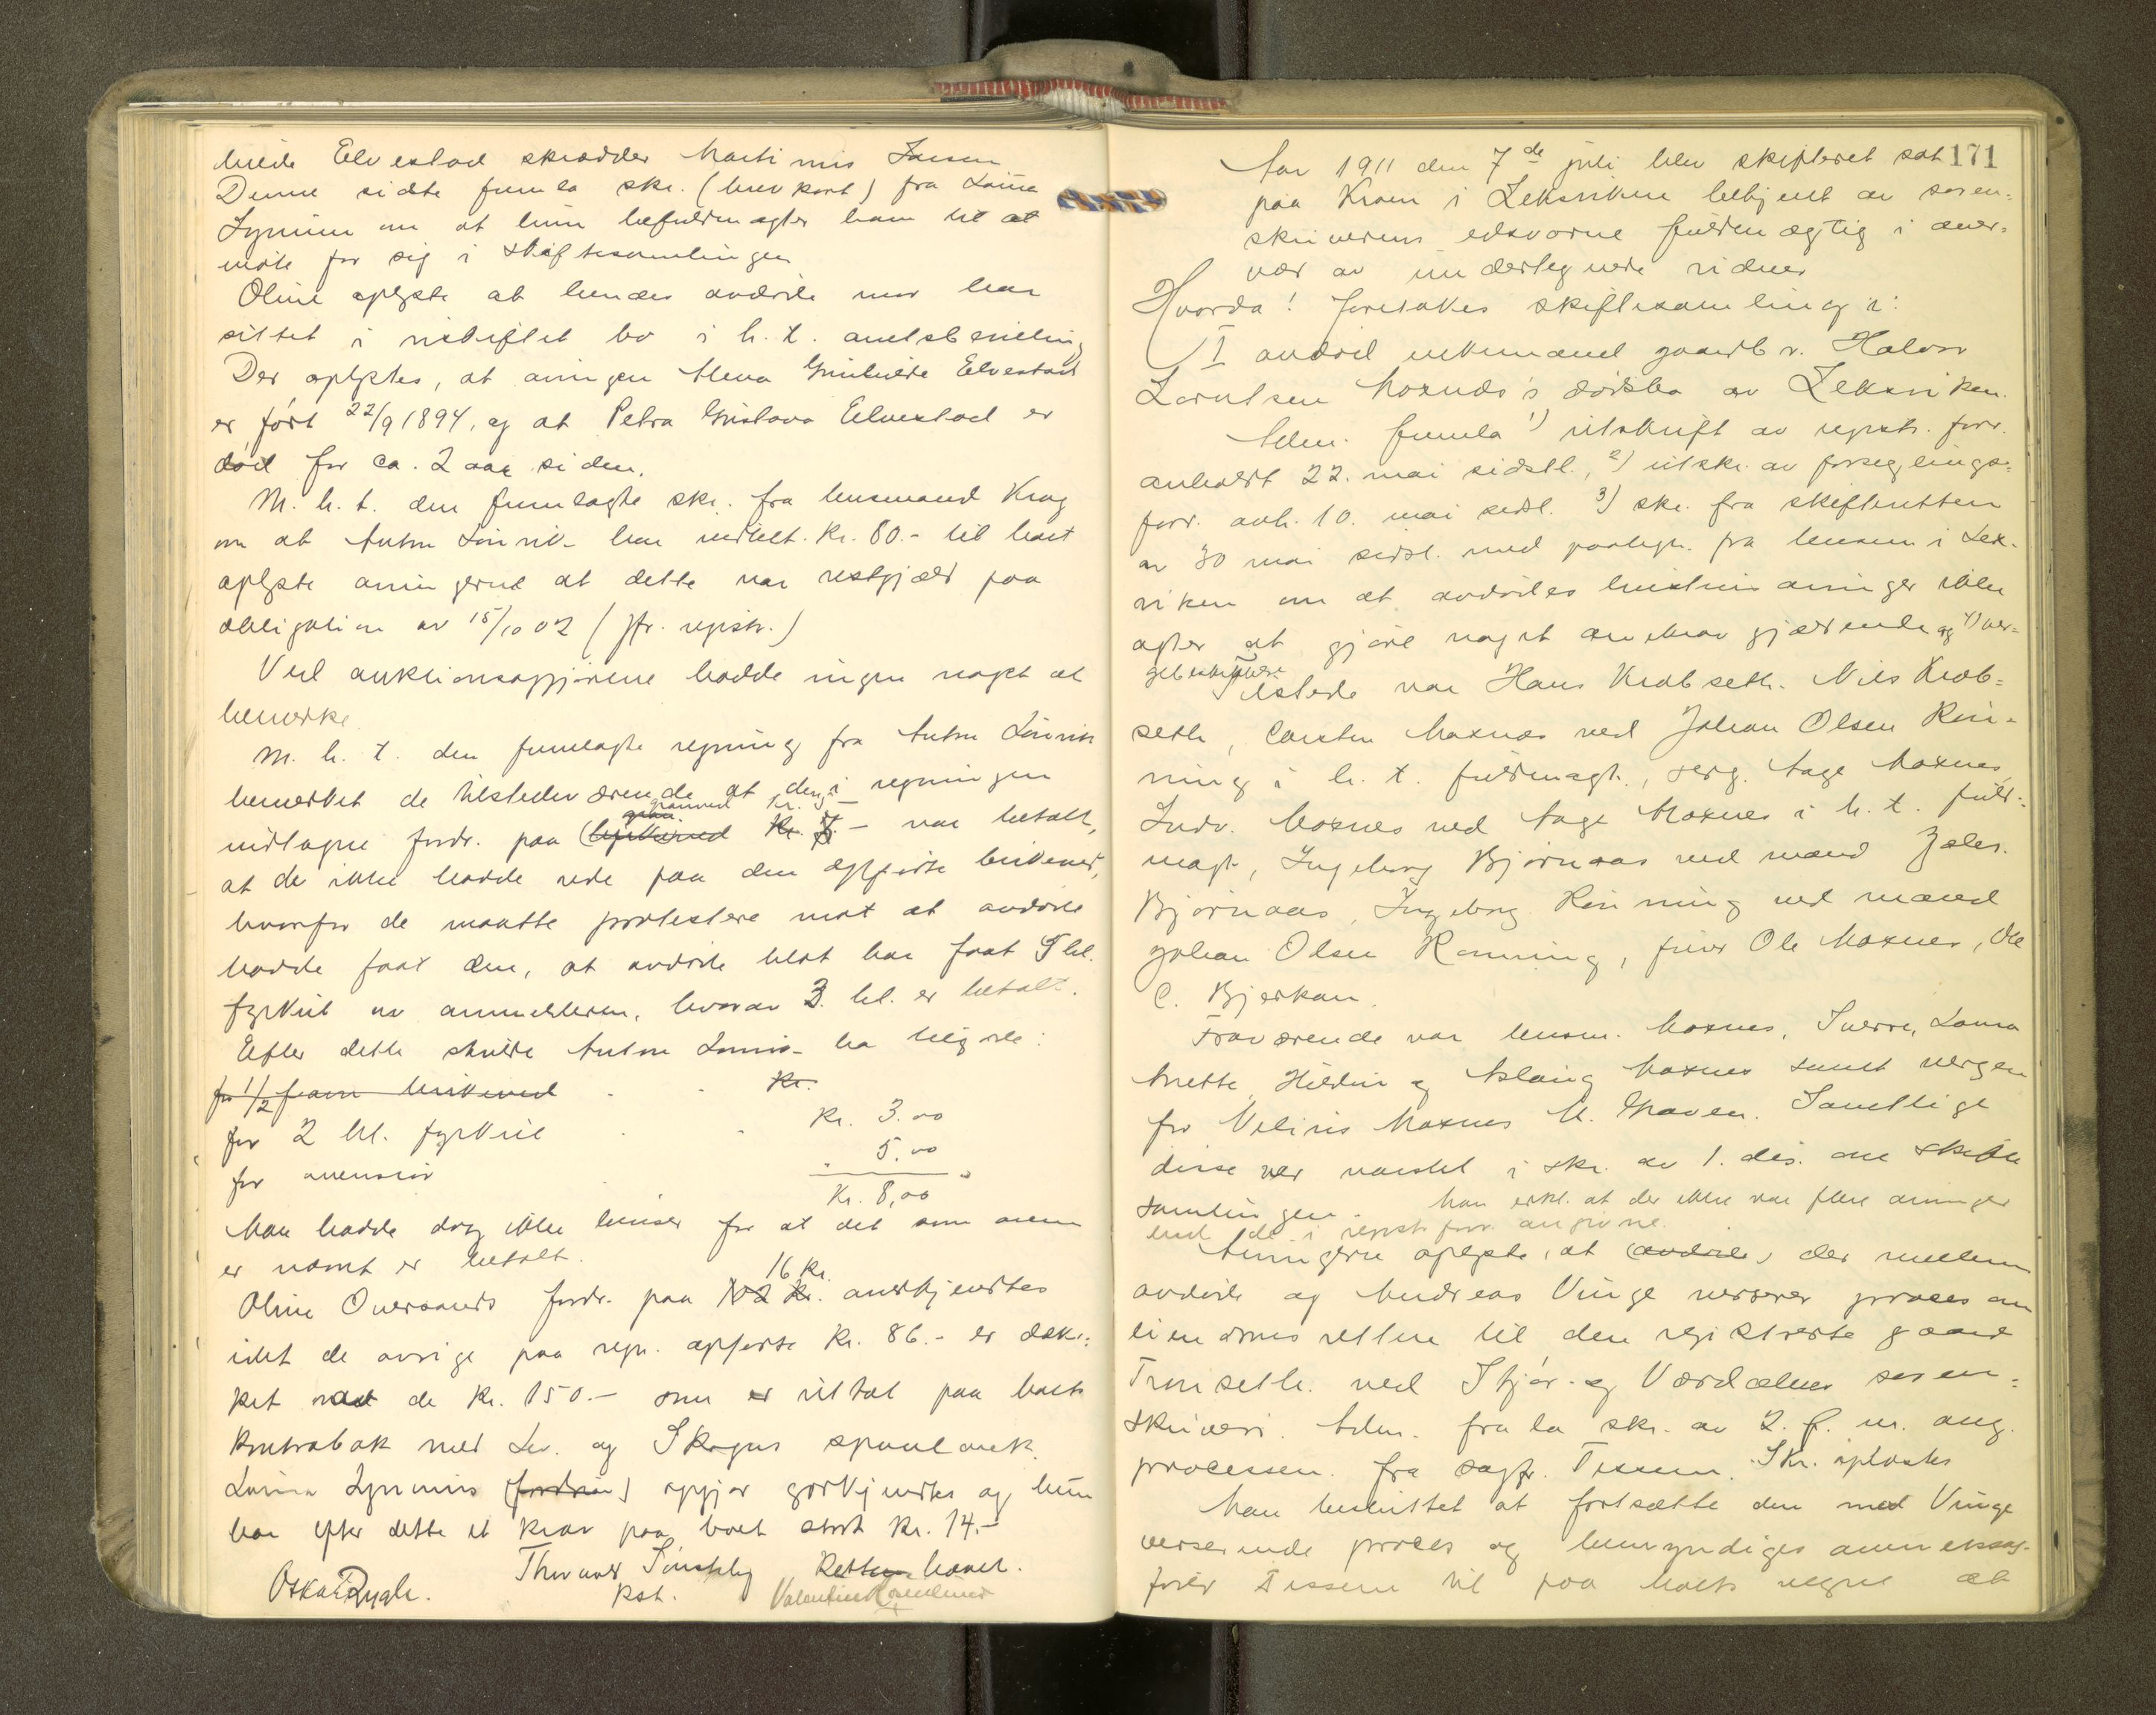 hulde Elvestad skrædder Martinus Larsen
Denne sidste fremla skr. (brevkort) fra Laura
Lynum om at hun befuldmægter ham til at
møte for sig i skiftesamlingen
Oline oplyste at hendes avdøde mor har
sittet i uskiftet bo i h. t. amtsbevilling
Der oplystes, at arvingen Alena Gunhilde Elvestad
er født 22/9 1894, og at Petra Gustava Elvestad er
død for ca. 2 aar siden.
M. h. t. den fremlagte skr. fra lensmand Krog
om at Anton Lünvik har indbet. Kr. 80.- til boet
oplyste arvingerne at dette var restgjæld paa
obligation av 15/10 02 (jfr. registr.)
Ved auktionsopgjørene hadde ingen noget at
bemerke
M. h. t. den fremlagte regning fra Anton Lünvik
bemerket de tilstedeværende at den i regningen
granved Kr.
indtagne fordr. paa (bjerkeved Kr. 7.- var betalt,
at de ikke hadde rede paa den opførte birkeved,
hvorfor de maatte protestere mot at avdøde
hadde faat den, at avdøde blot har faat 5 hl.
fyrkul av anmelderen, hvorav 3 hl. er betalt.
Efter dette skulde Anton Lünvik ha tilgode:
for 1/2 favn birkeved Kr.
for 2 hl. fyrkul Kr. 3.00
for 5.00
Kr. 8,00
Man hadde dog ikke beviser for at det som oven
er nævnt er betalt.
16 Kr.
Oline Oversands fordr. paa 102 Kr. anerkjendtes
idet de øvrige paa regn. opførte Kr. 86.- er dæk-
ket med de Kr. 150.- som er uttat paa boets
kontrabok med Lev. og Skognes sparebank.
Laura Lynums (fordrin) opgjør godkjendtes og hun
har efter dette et krav paa boet stort Kr. 14.-
Retten hævet.
Oskar Rygh. Kst. Valentin
171
Aar 1911 den 7de juli blev skifteret sat
paa Kroen i Leksviken betjent av soren-
skriverens edsvorne fuldmægtig i over-
vær av undertegnede vidner
Hvorda! foretokes skiftesamling i:
I avdøde enkemand gaardbr. Halvor
Larntsen Moxnes's dødsbo av Leksviken.
Adm. fremla 1) utskrift av registr. forr.
anholdt 22. mai sidstl., 2) utskr. av forseglings-
forr. anh. 10. mai sidstl. 3) skr. fra skifteretten
av 30 mai sidstl. med paategn. fra lensm. i Lex-
viken om at avdødes hustrus arvinger ikke
agter at gjøre noget arvekrav gjældende og 4) ver-
gebeskikkelse
Tilstede var Hans Krobseth. Nils Krob-
seth, Carsten Moxnes ved Johan Olsen Røn-
ning i h. t. fuldmagt., serg. Aage Moxnes
Ludv. Moxnes ved Aage Moxnes i h. t. fuld-
magt, Ingeborg Bjørnaas ved mand Zakr.
Bjørnaas, Ingeborg Rønning ved mand
Johan Olsen Rønning, Ole Moxnes, Ole
C. Bjerkan.
Fraværende var lensm. Moxnes, Sverre, Laura
Anette, Hildur og Aslaug Moxnes samt vergen
for Moxnes M. Graven. Samtlige
disse var varslet i skr. av 1. ds. om skifte
samlingen. Man erkl. at der ikke var flere arvinger
end de i registr.forr. angivne.
Arvingerne oplyste, at (avdøde) der mellem
avdøde og Andreas Vinge verserer proces om
eiendomsretten til den registrerte gaard
Tronseth. ved Stjør- og Værdalens soren-
skriveri. Adm. fra la skr. av 2. f. m. ang.
processen. fra sagf. Tessem. Skr. oplæstes
Man besluttet at fortsætte den med Vinge
verserende proces og bemyndiges overretssag-
fører Tessem til paa boets vegne at